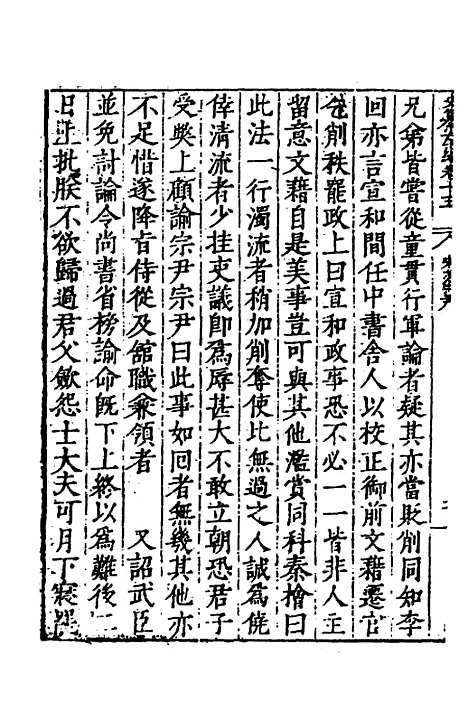 兄弟皆嘗從童貫行軍論者疑其亦當貶削同知李
回亦言宣和間任中書舍人以校正御前文藉遷官
乞削秩罷政上曰宣和政事恐不必一一皆非人主
留意文藉自是美事豈可與其他濫賞同科秦檜曰
此法一行濁流者稍加削奪使比無過之人誠爲僥
倖清流者少挂吏議卽爲辱甚大不敢立朝恐君子
受弊上顧諭宗尹宗尹曰此事如回者無幾其他亦
不足惜遂降㫖侍從及舘職兼領者　又詔武臣
並免討論令尚書省榜諭命既下上終以爲難後二
日手批朕不欲歸過君父斂怨士大夫可月下寢罷